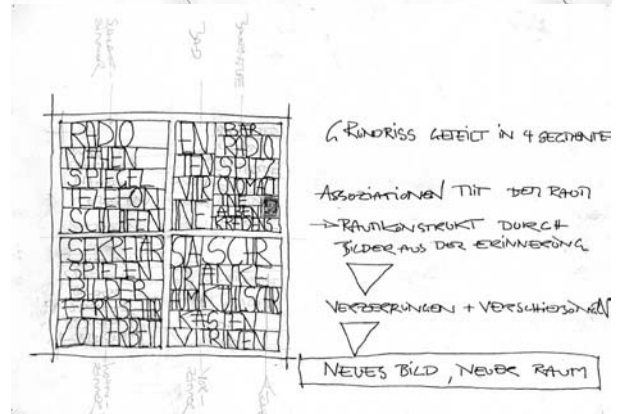 RADIO
NÄHEN
SPIEGEL
TELEFON
SCHLAFEN
EN
TEN
VITRI
NE
BAR
RADIO
SPITZ
KREDENZ
SEKRETÄR
SPIELEN
BILDER
FERNSEHR
KASTEN
VITRINEN
GRUNDRISS GETEILT IN 4 SEGMENTE
ASSOZIATIONEN MIT DEM RAUM
→ RAUMKONSTRUKT DURCH
BILDER AUS DER ERINNERUNG
VERZERRUNGEN + VERSCHIEBUNGEN
NEUES BILD, NEUER RAUM